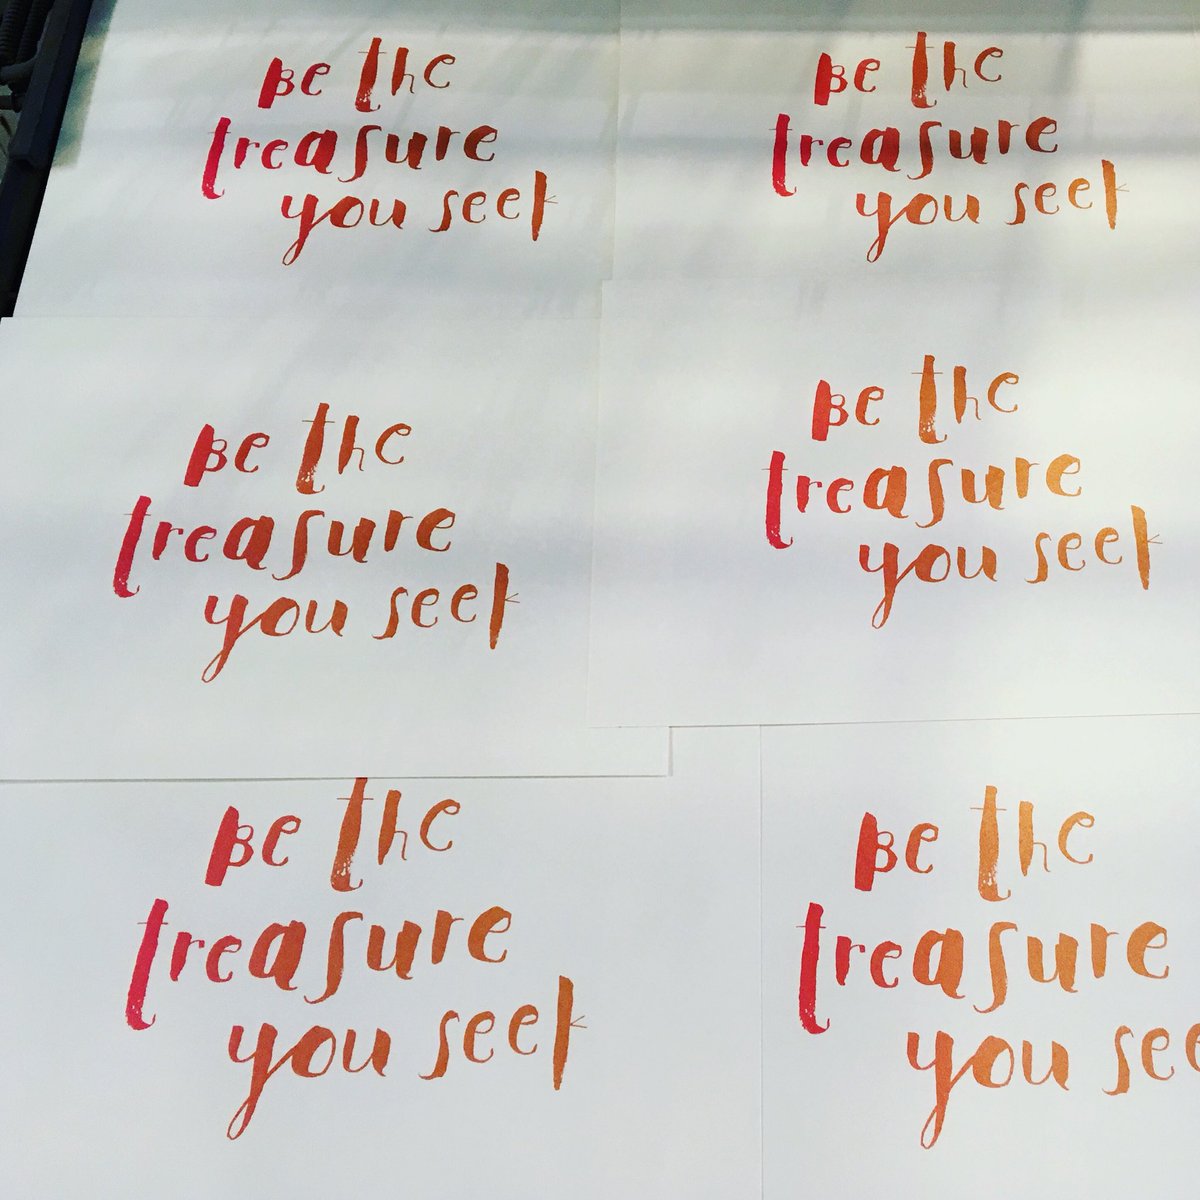 Be the
treasure
you seek
Be the
treasure
you seek
Be the
treasure
you seek
Be the
treasure
you seek
Be the
treasure
you seek
Be the
treasure
you see